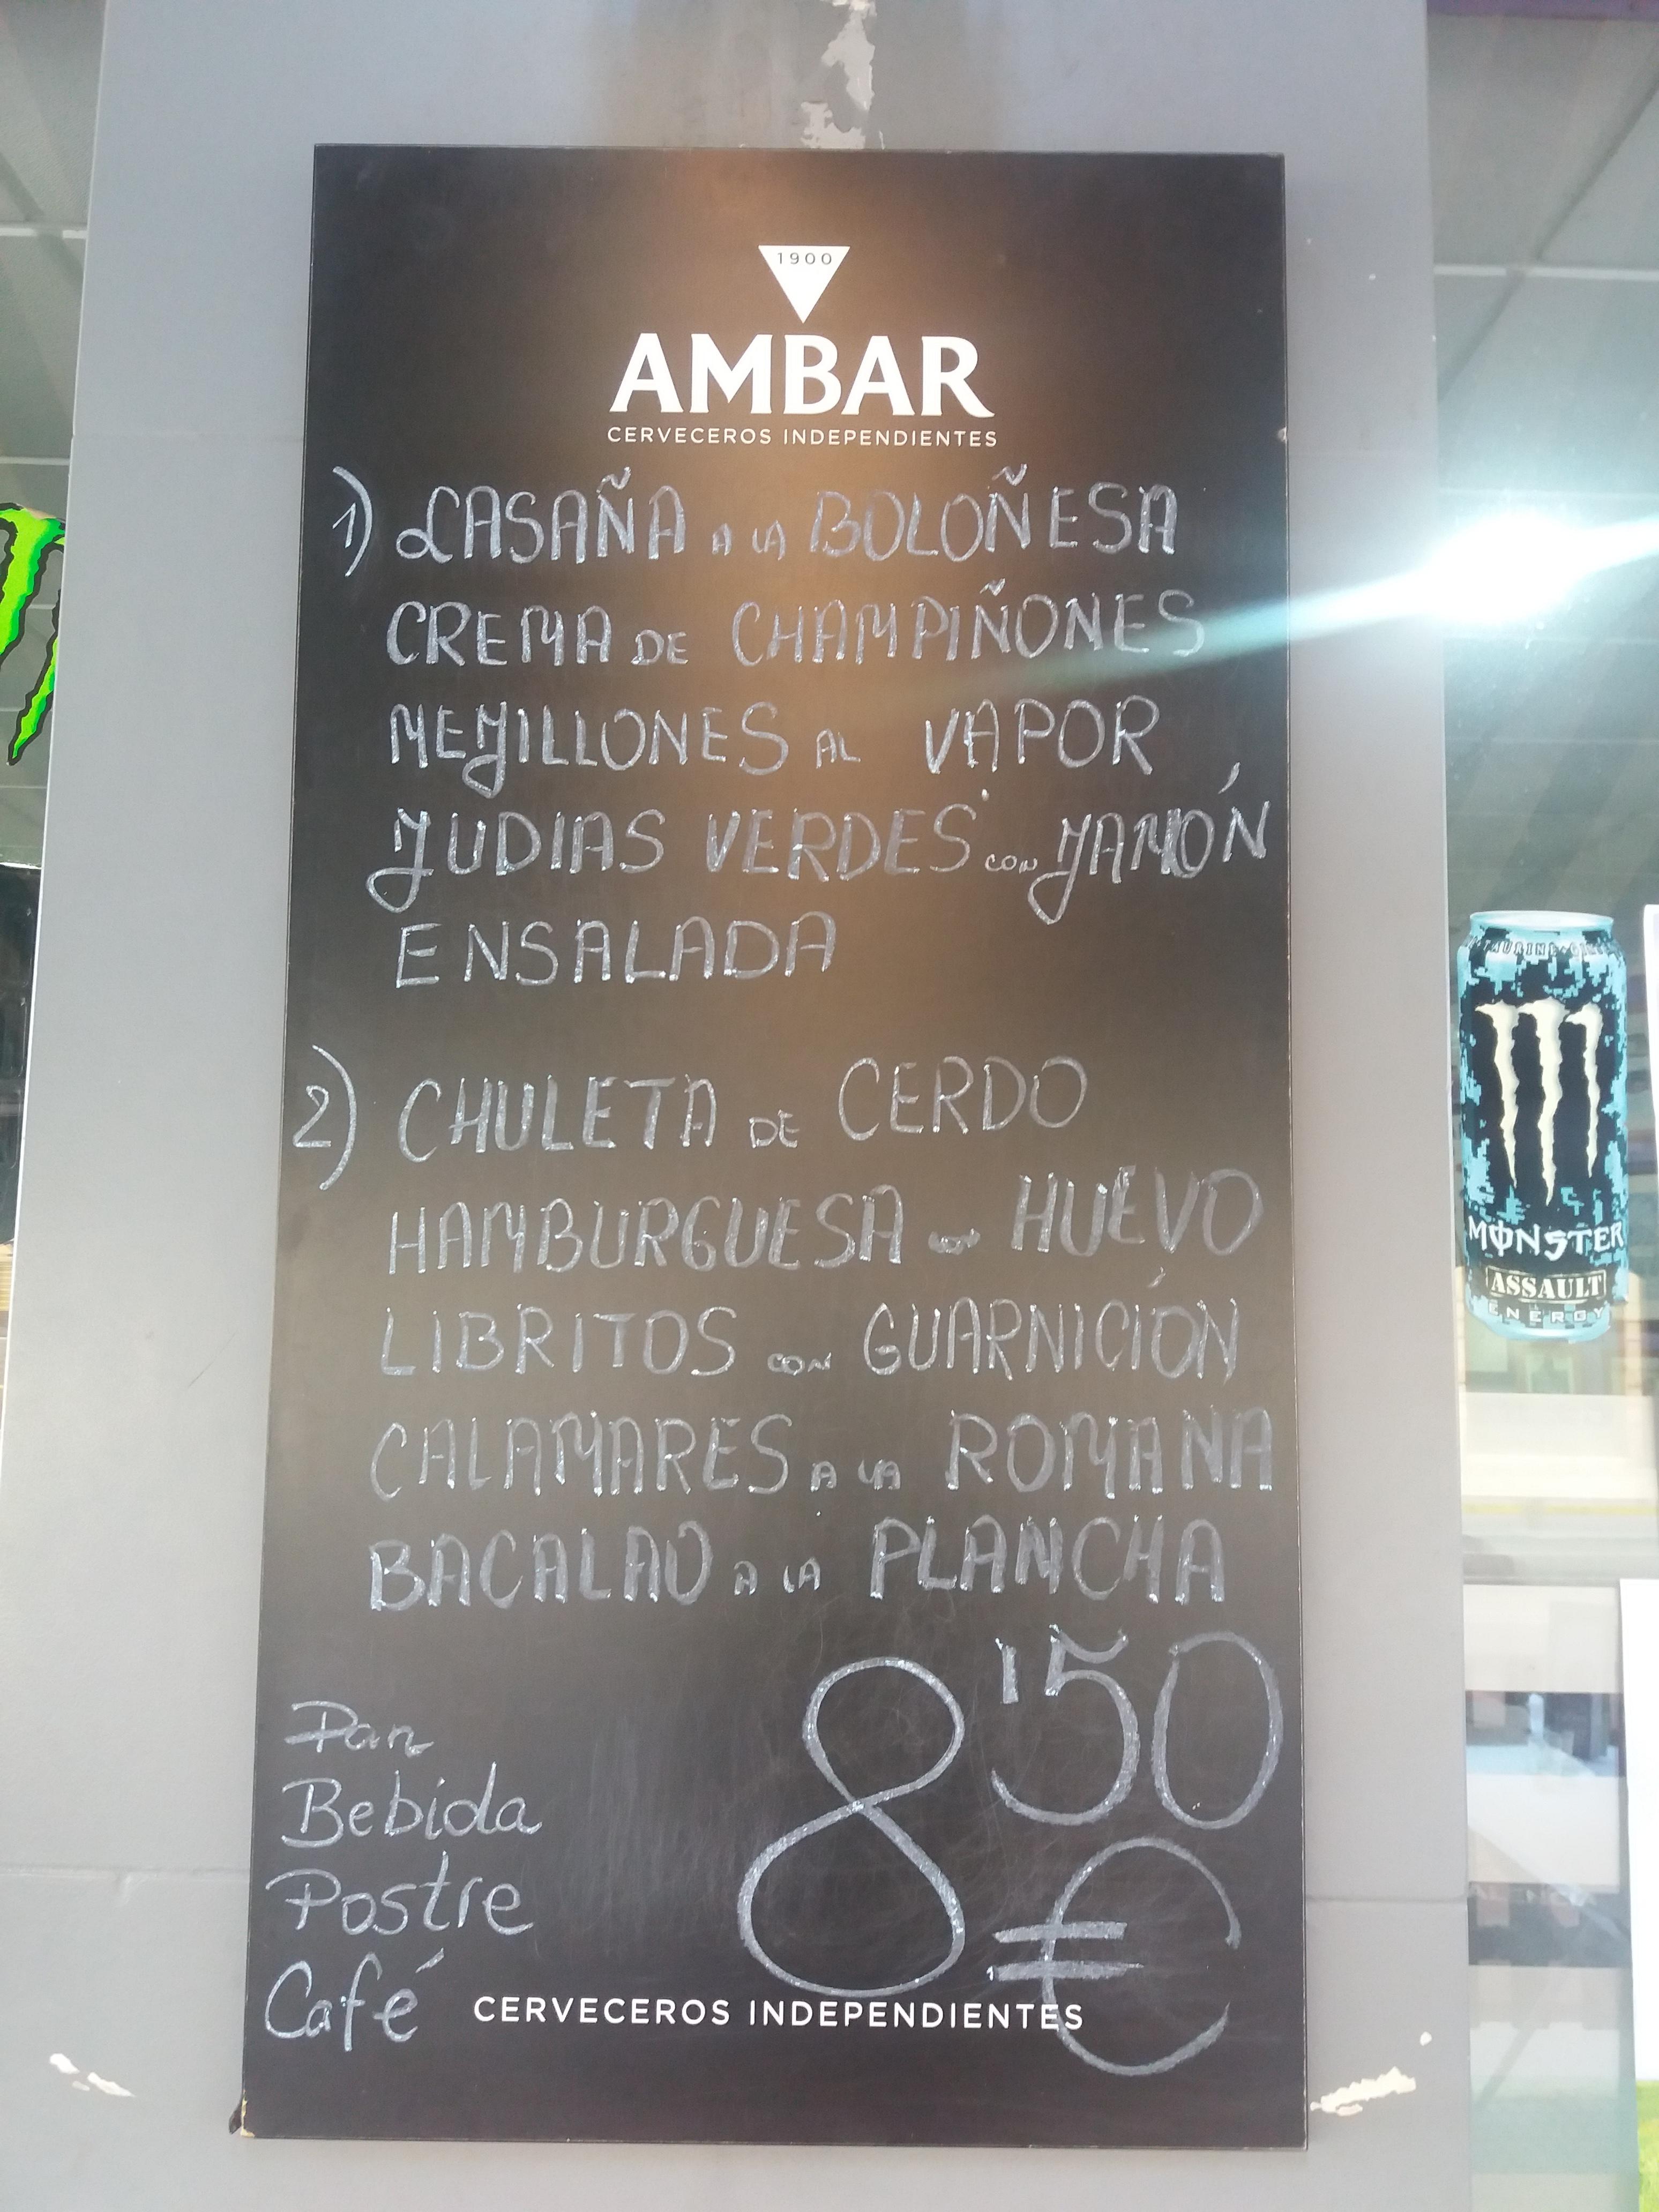 1900
AMBAR
CERVECEROS INDEPENDIENTES
1) LASAÑA A LA BOLOÑESA
CREMA DE CHAMPIÑONES
MEJILLONES AL VAPOR
JUDIAS VERDES CON JAMÓN
ENSALADA
2) CHULETA DE CERDO
HAMBURGUESA CON HUEVO
LIBRITOS CON GUARNICIÓN
CALAMARES A LA ROMANA
BACALAO A LA PLANCHA
8'50
€
Pan
Bebida
Postre
Café
CERVECEROS INDEPENDIENTES
MONSTER
ASSAULT
ENERGY